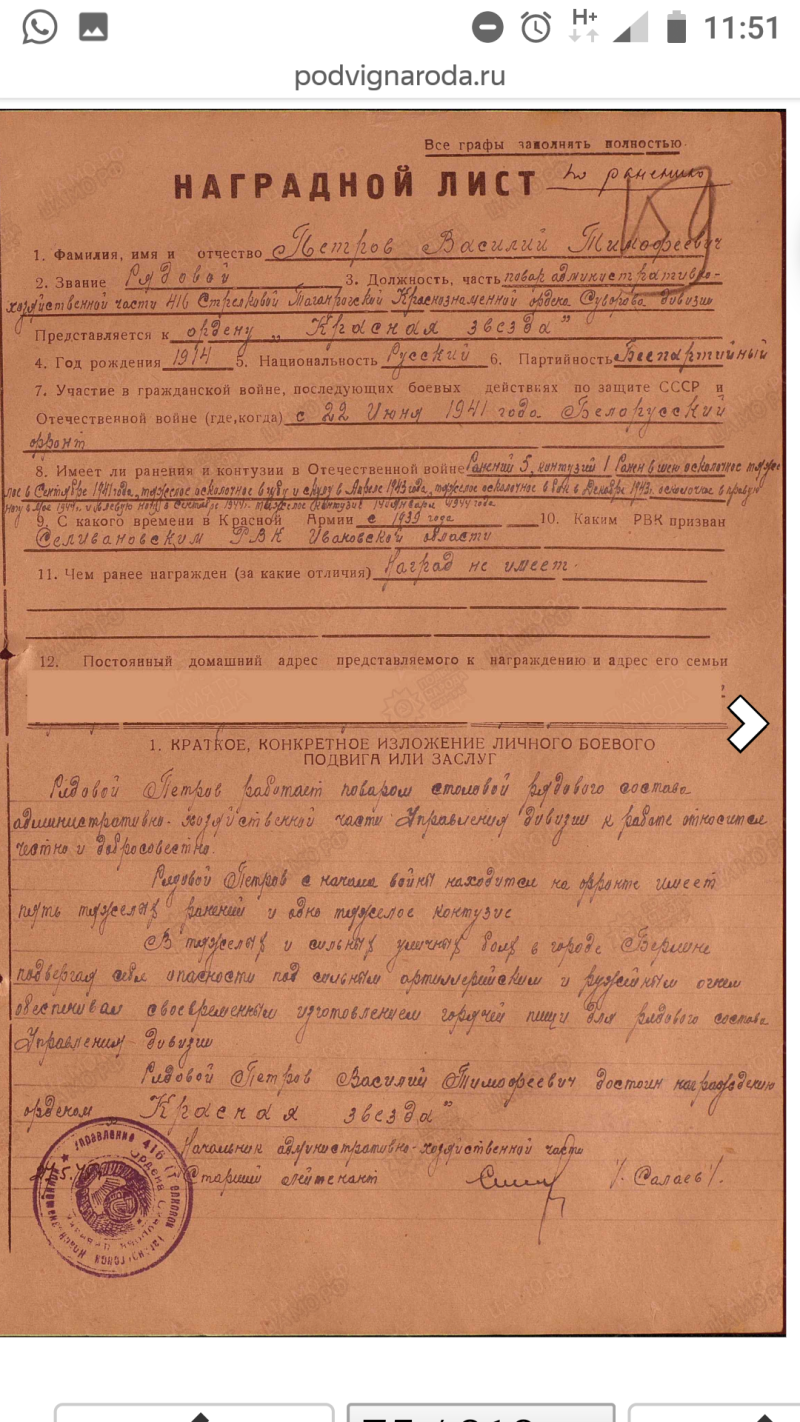 11:51
H+
podvignaroda.ru
Все графы заполнять полностью.
НАГРАДНОЙ ЛИСТ по ранению
1. Фамилия, имя и отчество Петров Василий Тимофеевич
2. Звание Рядовой 3. Должность, часть повар административно-
хозяйственной части 416 Стрелковой Таганрогской Краснознаменной ордена Суворова дивизии
Представляется к ордену „Красная звезда"
4. Год рождения 1914 5. Национальность Русский 6. Партийность Беспартийный
7. Участие в гражданской войне, последующих боевых действиях по защите СССР и
Отечественной войне (где, когда) с 22 Июня 1941 года Белорусский
фронт
8. Имеет ли ранения и контузии в Отечественной войне Ранений 5, контузий 1 Ранен в шею осколочное тяже-
лое в Сентябре 1941 года, тяжелое осколочное в губу и скулу в Апреле 1943 года, тяжелое осколочное в бок в Декабре 1943г. осколочное в правую
ногу в Мае 1944г. и в левую ногу в Сентябре 1944г. тяжелое контузия 14 Января 1944 года
9. С какого времени в Красной Армии с 1939 года 10. Каким РВК призван
Селивановским РВК Ивановской области
11. Чем ранее награжден (за какие отличия) Наград не имеет.
12. Постоянный домашний адрес представляемого к награждению и адрес его семьи
1. КРАТКОЕ, КОНКРЕТНОЕ ИЗЛОЖЕНИЕ ЛИЧНОГО БОЕВОГО
ПОДВИГА ИЛИ ЗАСЛУГ
Рядовой Петров работает поваром столовой рядового состава
административно-хозяйственной части Управления дивизии к работе относится
честно и добросовестно.
Рядовой Петров с начала войны находится на фронте имеет
пять тяжелых ранений и одно тяжелое контузие
В тяжелых и сильных уличных боях в городе Берлине
подвергая себя опасности под сильным артиллерийским и ружейным огнем
обеспечивал своевременным изготовлением горячей пищи для рядового состава
Управления дивизии
Рядовой Петров Василий Тимофеевич достоин награждению
орденом „Красная звезда"
Начальник административно-хозяйственной части
Старший лейтенант /Салаев/.